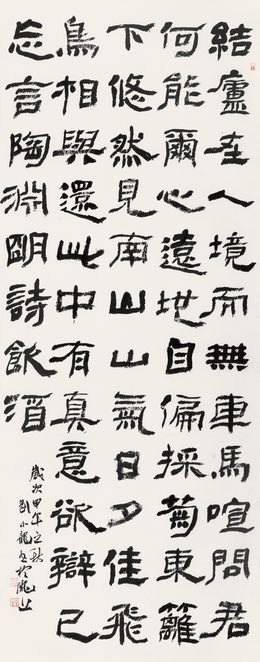 結廬在人境而無車馬喧問君
何能爾心遠地自偏採菊東籬
下悠然見南山山氣日夕佳飛
鳥相與還此中有真意欲辯已
忘言陶淵明詩飲酒
歲次甲午之秋
劉小龍書於隴上